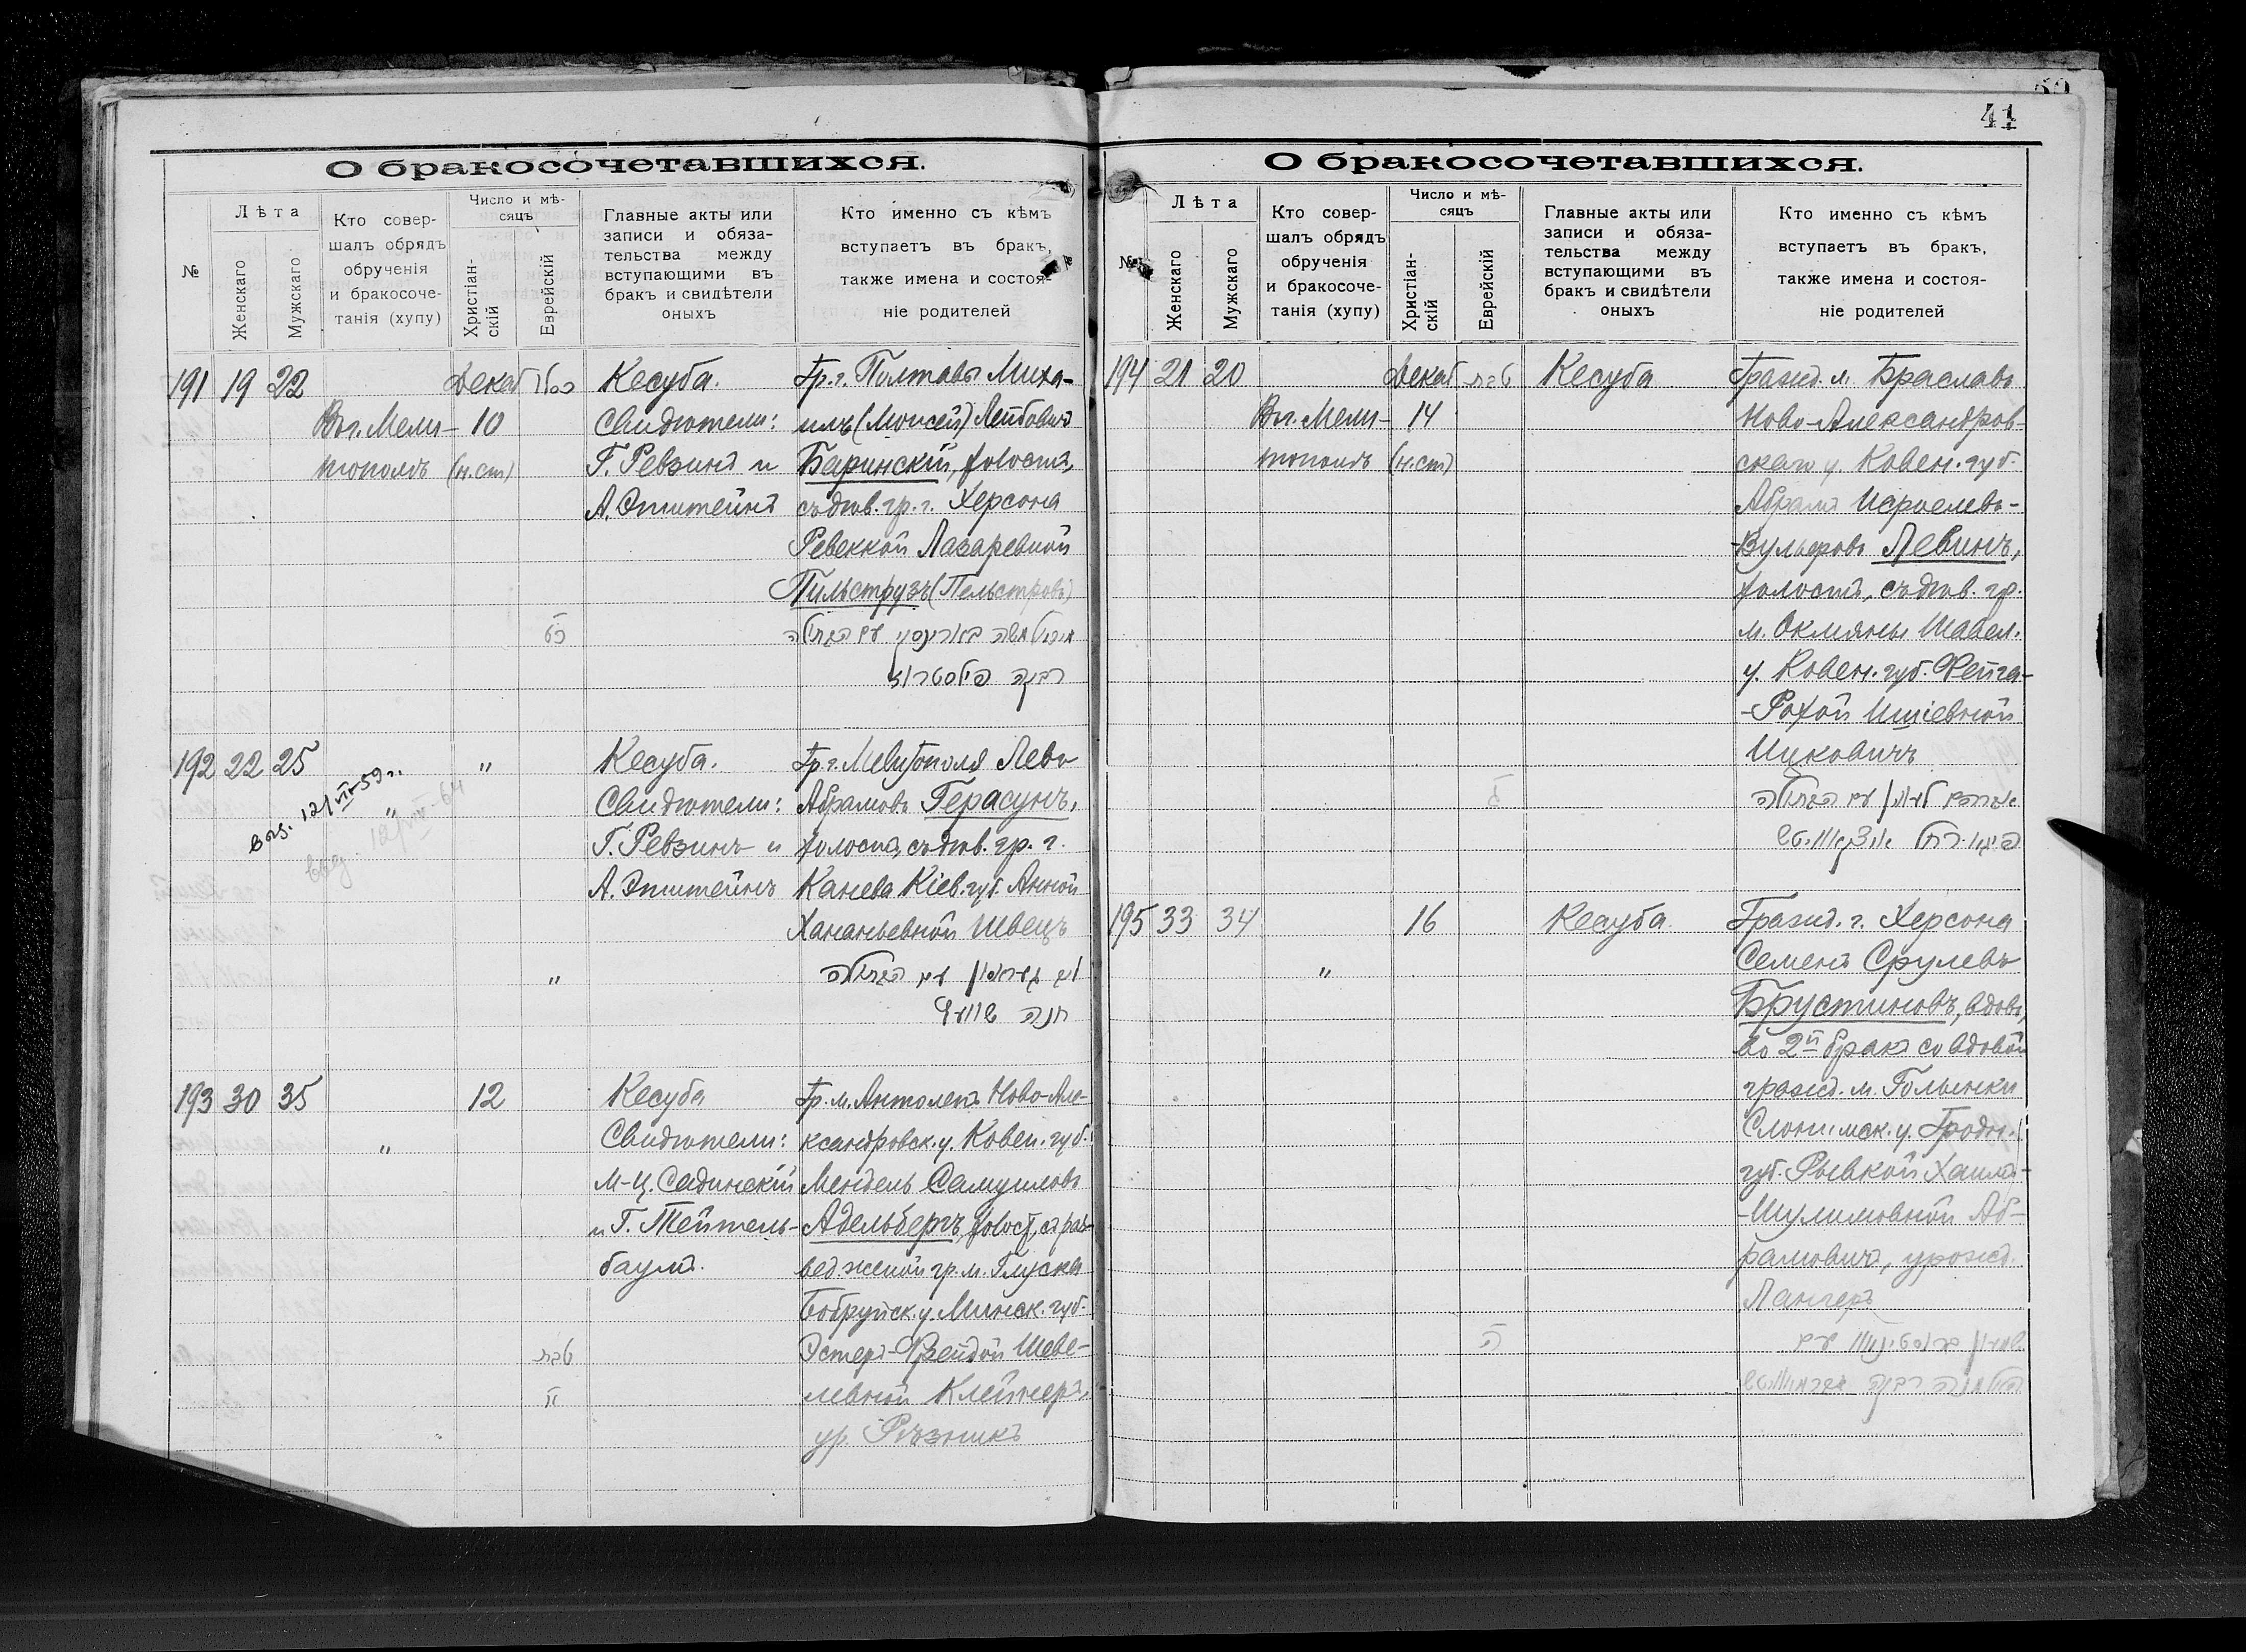 41
О бракосочетавшихся.
№
Лѣта
Женскаго
Мужскаго
Кто совер-
шалъ обрядъ
обрученія
и бракосоче-
танія (хупу)
Число и мѣ-
сяцъ
Христіан-
скій
Еврейскій
Главные акты или
записи и обяза-
тельства между
вступающими въ
бракъ и свидѣтели
оныхъ
Кто именно съ кѣмъ
вступаетъ въ бракъ,
также имена и состоя-
ніе родителей
191 19 22
Въ г. Мели-
тополѣ
Декаб
10
(н.ст)
כסלו
כט
Кесуба.
Свидѣтели:
Г. Ревзинъ и
А. Эпштейнъ
Гр. г. Полтавы Миха-
илъ (Моисей) Лейбовичъ
Баринскій, холостъ,
съ дѣв. гр. г. Херсона
Ревеккой Лазаревной
Пильструзъ (Пельстровъ)
משה בארינסקי עם הבתולה
רבקה פילסטרוז
192 22 25
"
"
выд. 12/VII-59 г.
выд. 12/VII-64
"
Кесуба.
Свидѣтели:
Г. Ревзинъ и
А. Эпштейнъ
Гр. г. Мелитополя Левъ
Абрамовъ Герасунъ,
холостъ, съ дѣв. гр. г.
Канева Кіев. губ. Анной
Хананьевной Швецъ
עם הבתולה
חנה שוועץ
193 30 35
"
12
טבת
Кесуба
Свидѣтели:
М-Ц. Садинскій
и Г. Тейтель-
баумъ.
Гр. м. Антолепъ Ново-Але-
ксандровск. у. Ковен. губ.
Мендель Самуиловъ
Адельбергъ, холост, съ раз-
вед. женой гр. м. Глуска
Бобруйск. у. Минск. губ.
Эстеръ-Фрейдой Шеве-
левной Клейнеръ,
ур. Рѣзникъ
О бракосочетавшихся.
№
Лѣта
Женскаго
Мужскаго
Кто совер-
шалъ обрядъ
обрученія
и бракосоче-
танія (хупу)
Число и мѣ-
сяцъ
Христіан-
скій
Еврейскій
Главные акты или
записи и обяза-
тельства между
вступающими въ
бракъ и свидѣтели
оныхъ
Кто именно съ кѣмъ
вступаетъ въ бракъ,
также имена и состоя-
ніе родителей
194 21 20
Въ г. Мели-
тополѣ
Декаб
14
(н.ст)
טבת
Кесуба
Гражд. м. Браславъ
Ново-Александров-
скаго у. Ковен. губ.
Абрамъ Исраелевъ-
-Вульфовъ Левинъ,
холостъ, съ дѣв. гр.
м. Окмяны Шавел.
у. Ковен. губ. Фейга-
-Рохой Ишіевной
Ицковичъ
אברהם לעווין עם הבתולה
רחל איצקאוויטש
195 33 34
"
16
ה
Кесуба
Гражд. г. Херсона
Семенъ Срулевъ
Брустиновъ, вдовъ,
во 2й бракъ со вдовой
гражд. м. Голынки
Слонимск. у. Гродн.
губ. Рывкой Хаимъ-
-Шулимовной Аб-
рамовичъ, урожд.
Лангеръ
עם
האלמנה רבקה אבראמאוויטש